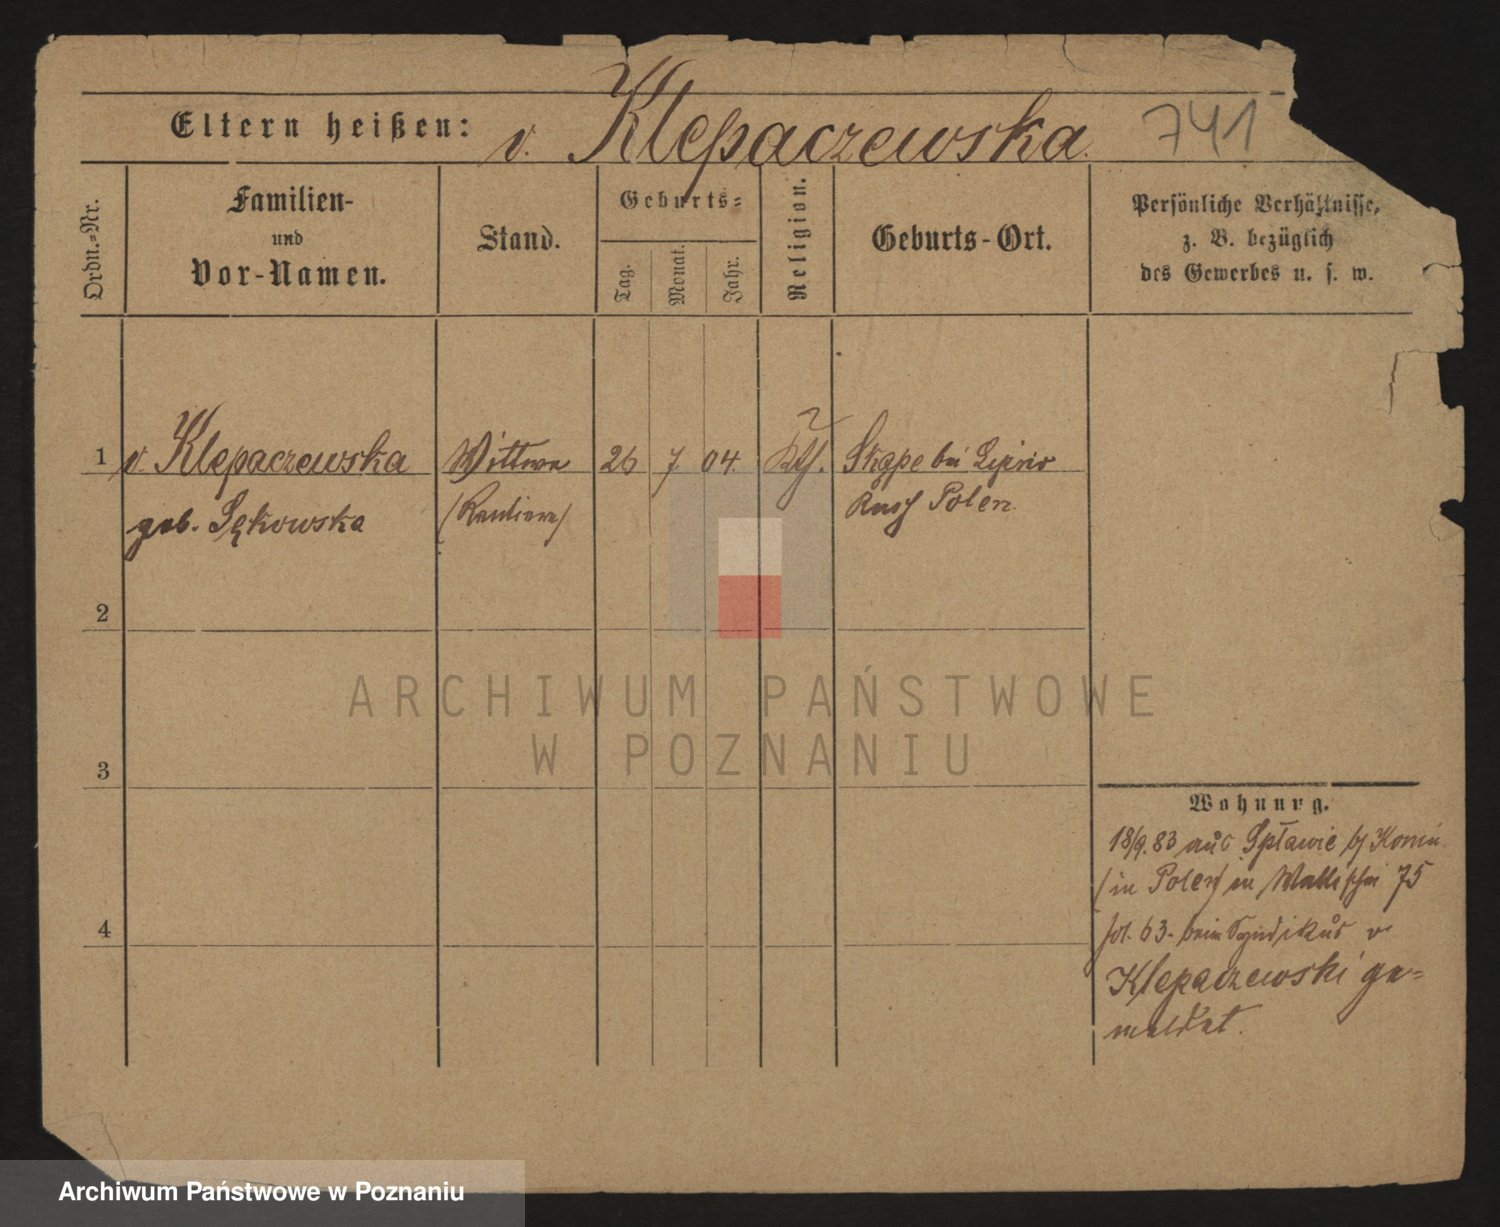 Eltern heißen: v. Klepaczewska 741
Ordn.-Nr.
Familien-
und
Vor-Namen.
Stand.
Geburts-
Tag.
Monat.
Jahr.
Religion.
Geburts-Ort.
Persönliche Verhältnisse,
z. B. bezüglich
des Gewerbes u. s. w.
1 v. Klepaczewska Wittwe 26 7 04 Kth. Skąpe bei Lipno
geb. Sękowska (Rentiere) Russ Polen
2
3
4
Wohnung.
18/9.83 aus Spławie b/ Konin
(in Polen) in Wallischei 75
fol. 63. beim Syndikus v
Klepaczewski ge=
meldet.
ARCHIWUM PAŃSTWOWE
W POZNANIU
Archiwum Państwowe w Poznaniu